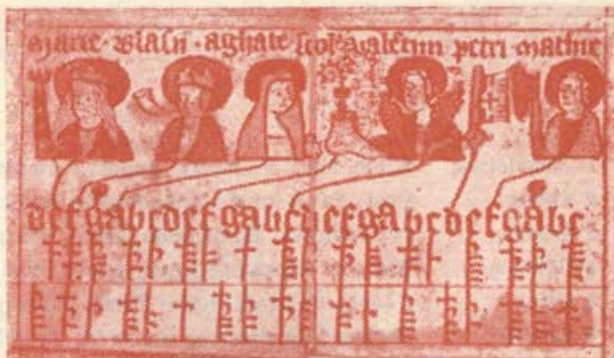 marie · blasii · aghate valētini petri mathie
defgabcdefgabcdefgabcdefgabc